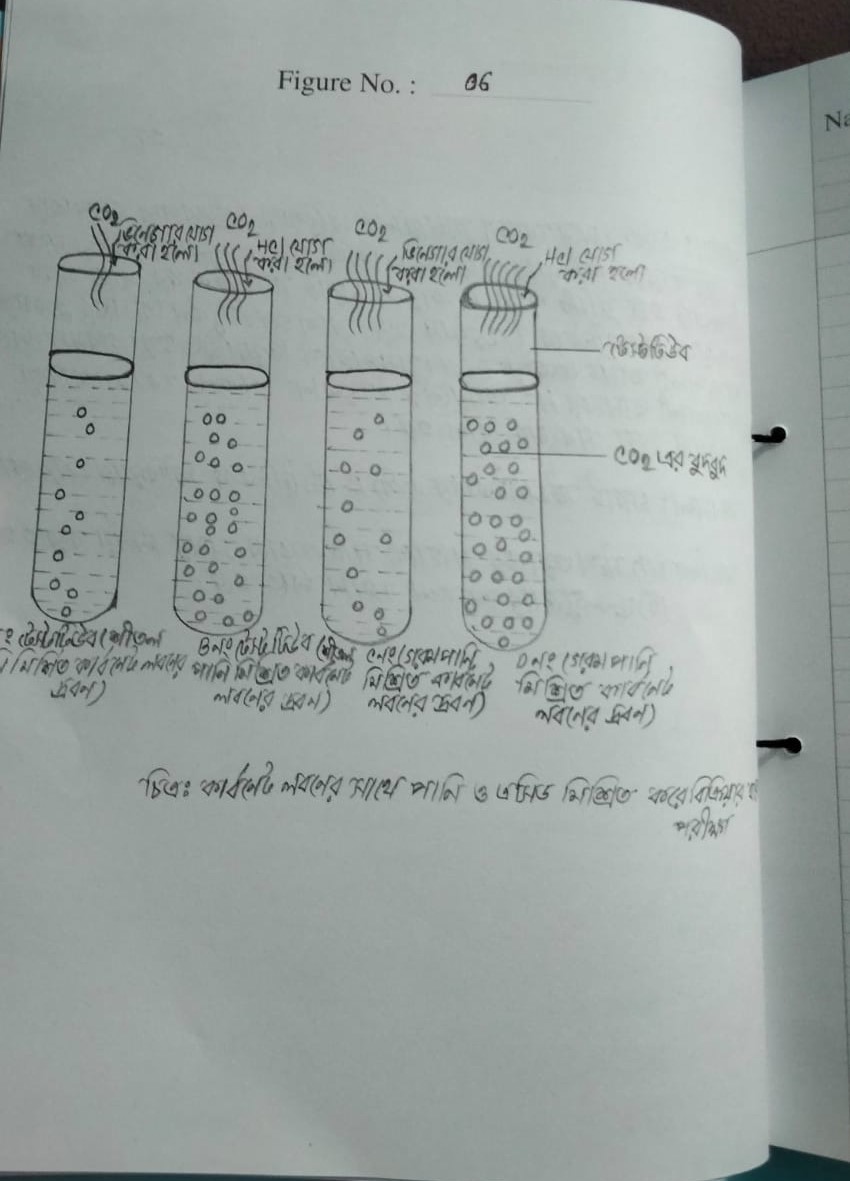 Figure No. : 06
Na
CO2
ভিনেগার যোগ
করা হলো
CO2
HCl যোগ
করা হলো
CO2
ভিনেগার যোগ
করা হলো
CO2
HCl যোগ
করা হলো
টেস্টটিউব
CO2 এর বুদবুদ
নং টেস্টটিউব (শীতল
মিশ্রিত কার্বনেট লবনের
দ্রবন)
B নং টেস্টটিউব (শীতল
পানি মিশ্রিত কার্বনেট
লবনের দ্রবন)
C নং (গরম পানি
মিশ্রিত কার্বনেট
লবনের দ্রবন)
D নং (গরম পানি
মিশ্রিত কার্বনেট
লবনের দ্রবন)
চিত্র: কার্বনেট লবনের সাথে পানি ও এসিড মিশ্রিত করে বিক্রিয়ার
পরীক্ষা